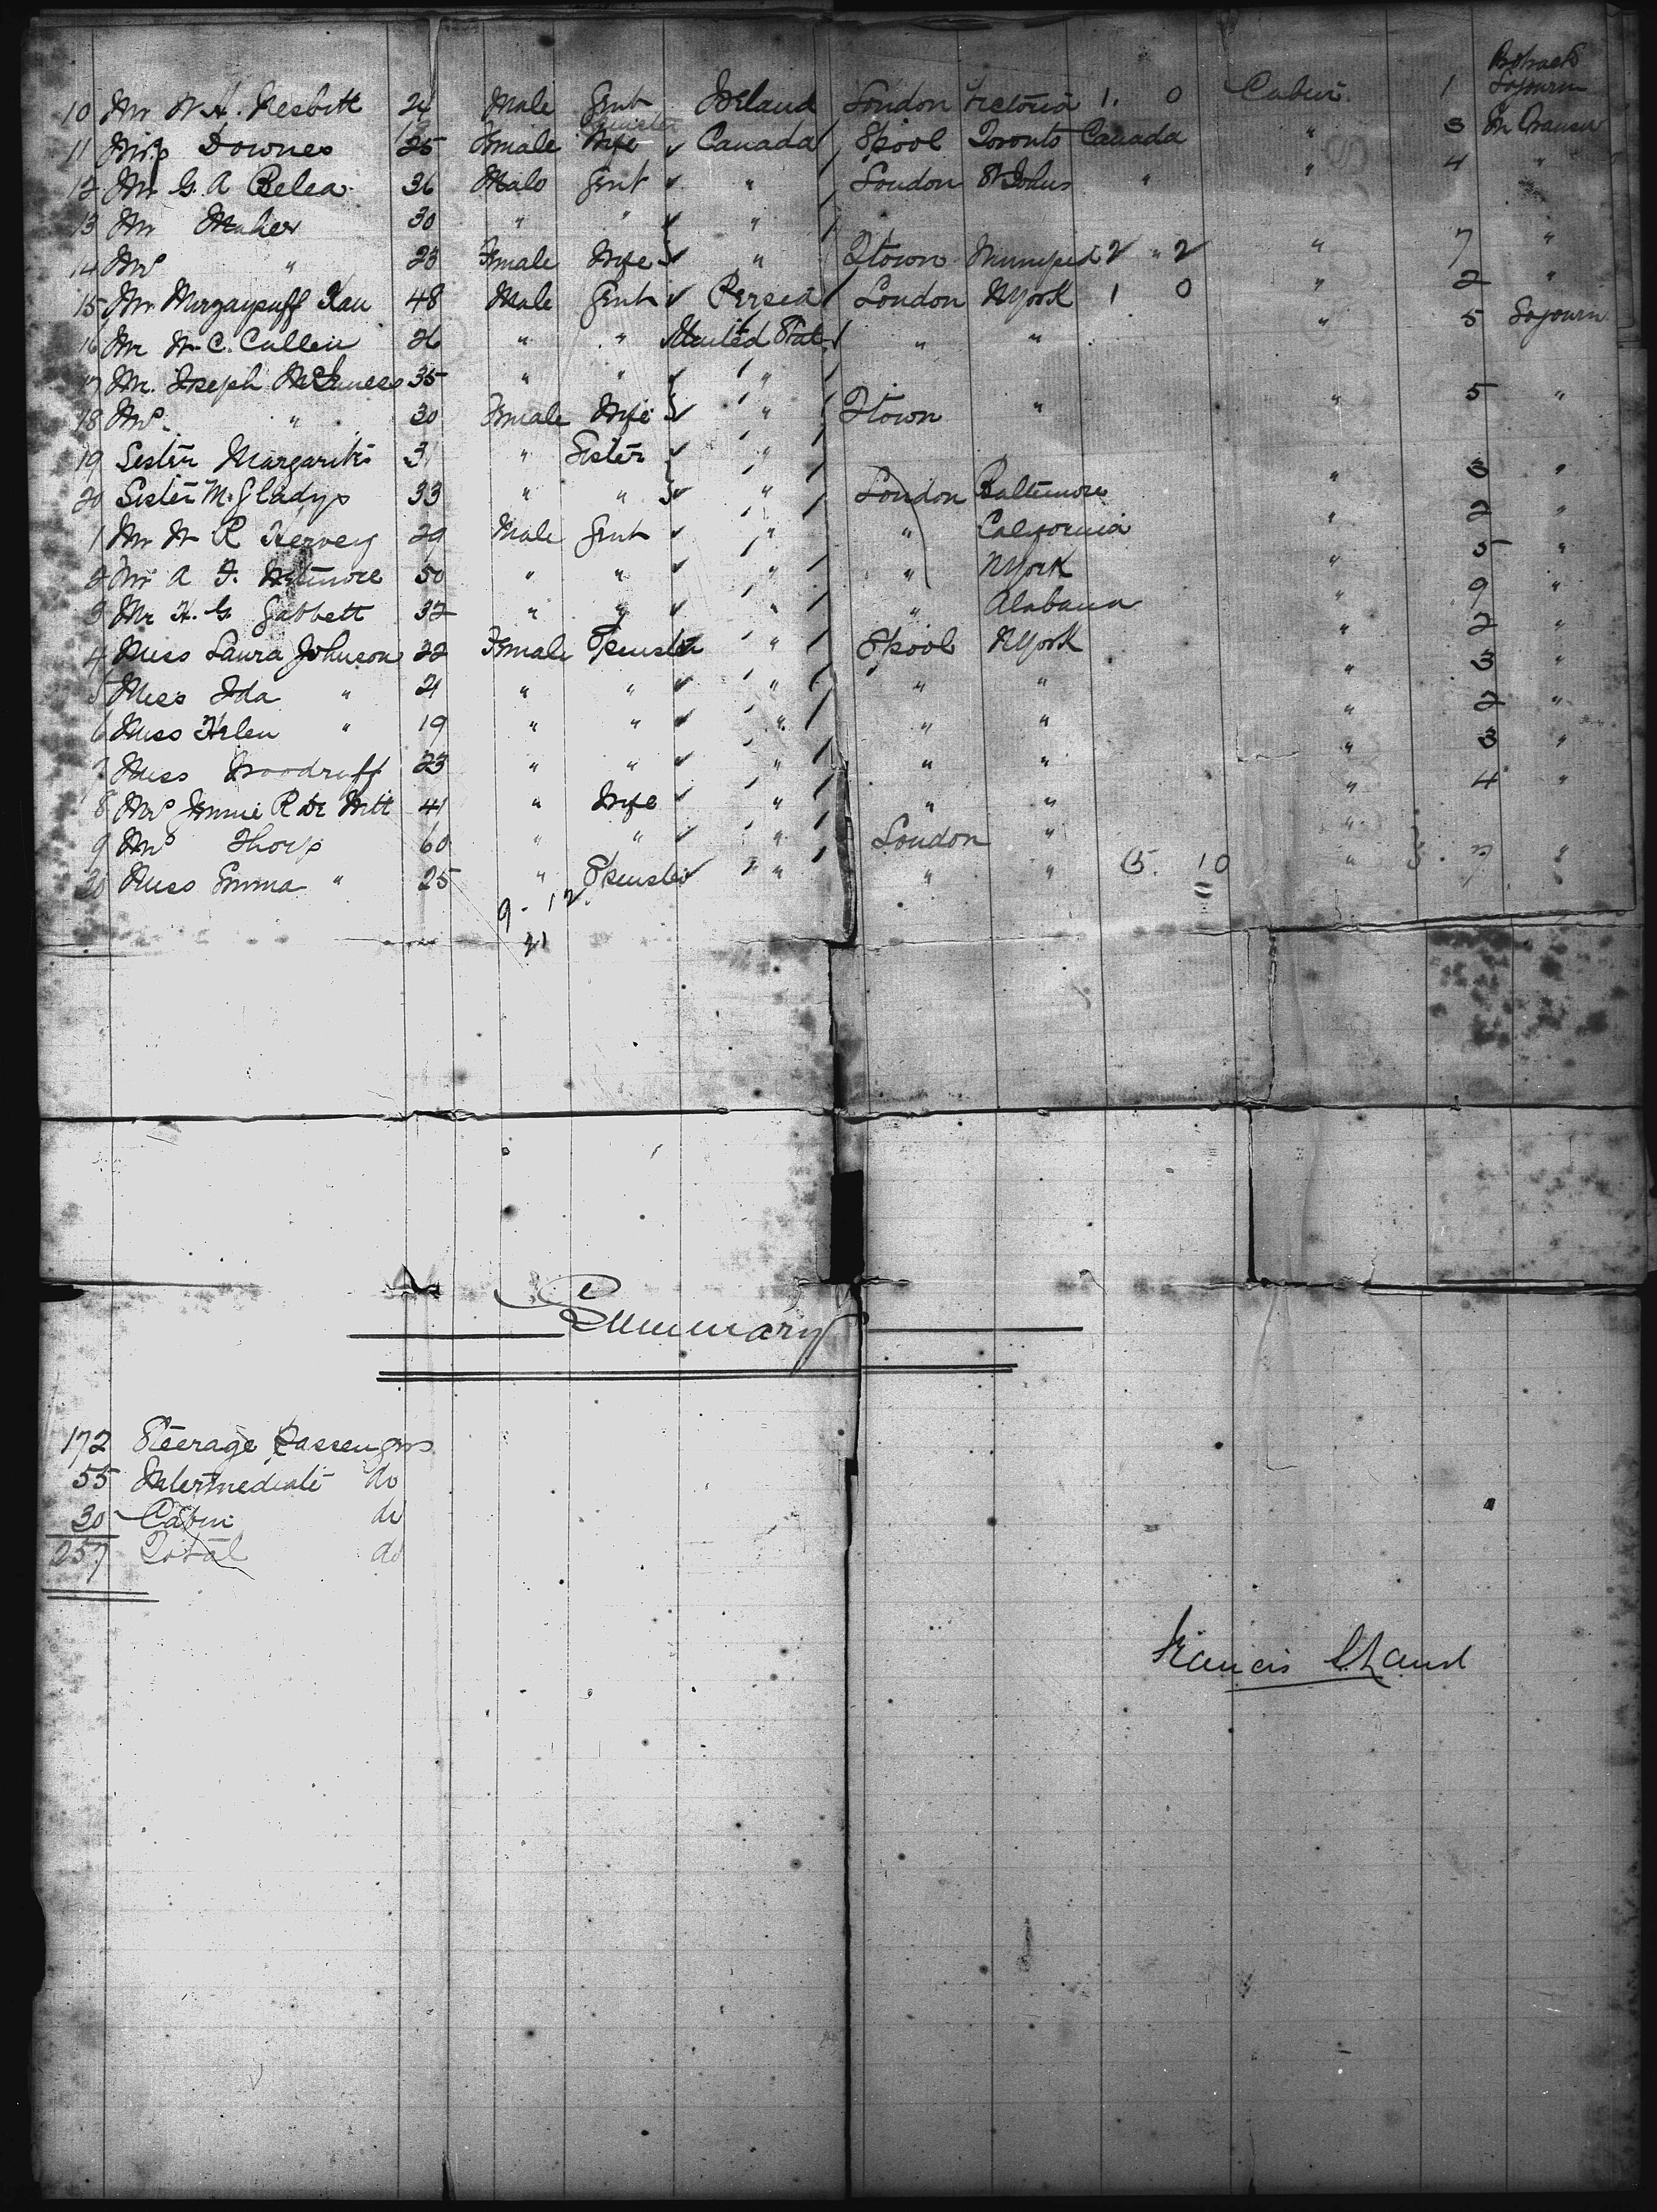 Protracted
10 Mr W. H. Nesbitt 24 Male Gent Ireland London Victoria 1. 0 Cabin 1 Sojourn
Spinster
11 Miss Downes 25 Female Wife Canada L'pool Toronto Canada " 3 In Transit
12 Mr G. A Belea 36 Male Gent " London St Johns " " 4 "
13 Mr Maher 30 " " "
14 Mrs " 23 Female Wife " Qtown Winnipeg 2 " 2 " 7 "
15 Mr Mirzayuff Kau 48 Male Gent Persia London N York 1 0 " 2 "
16 Mr W. C. Cullen 26 " " United States " " " 5 Sojourn
17 Mr. Joseph McGuness 35 " " "
18 Mrs. " 30 Female Wife " Qtown " " 5 "
19 Sister Margarites 31 " Sister "
20 Sister M. Gladys 33 " " " London Baltimore " 3 "
1 Mr W R Hervey 29 Male Gent " " California " 2 "
2 Mr A F. Wetmore 50 " " " " N York " 5 "
3 Mr H. G Gabbett 32 " " " " Alabama " 9 "
4 Miss Laura Johnson 22 Female Spinster " L'pool N York " 2 "
5 Miss Ida " 21 " " " " " " 3 "
6 Miss Helen " 19 " " " " " " 2 "
7 Miss Woodruff 23 " " " " " " 3 "
8 Mrs Annie R De Witt 41 " Wife " " " " 4 "
9 Mrs Thorp 60 " " " London " "
30 Miss Emma " 25 " Spinster " " " 5. 10 " 7 "
9 - 12
21
Summary
172 Steerage Passengers
55 Intermediate do
30 Cabin do
257 Total do
Francis Shand